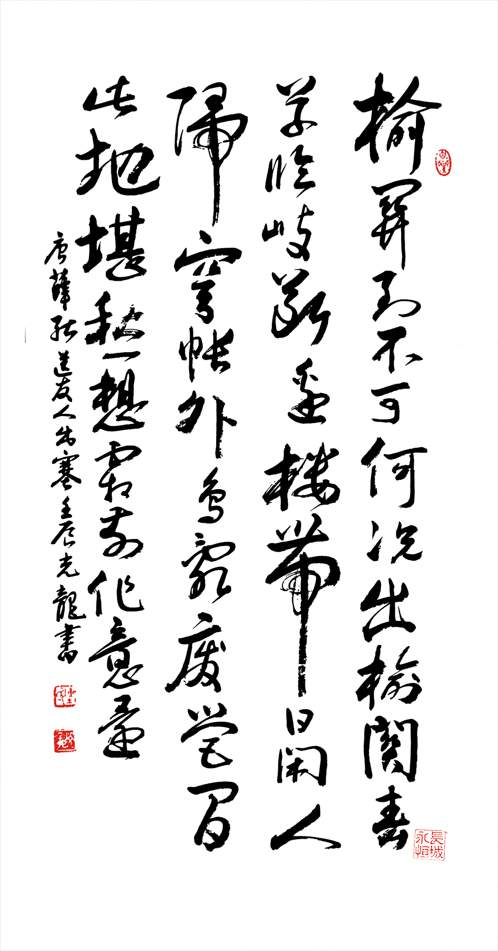 榆關到不可何況出榆關春
草臨岐斷邊樓帶日閑人
歸穹帳外鳥亂廢營間
此地堪愁想霜前作意還
唐薛能送友人出塞壬辰光龍書
長城永恒